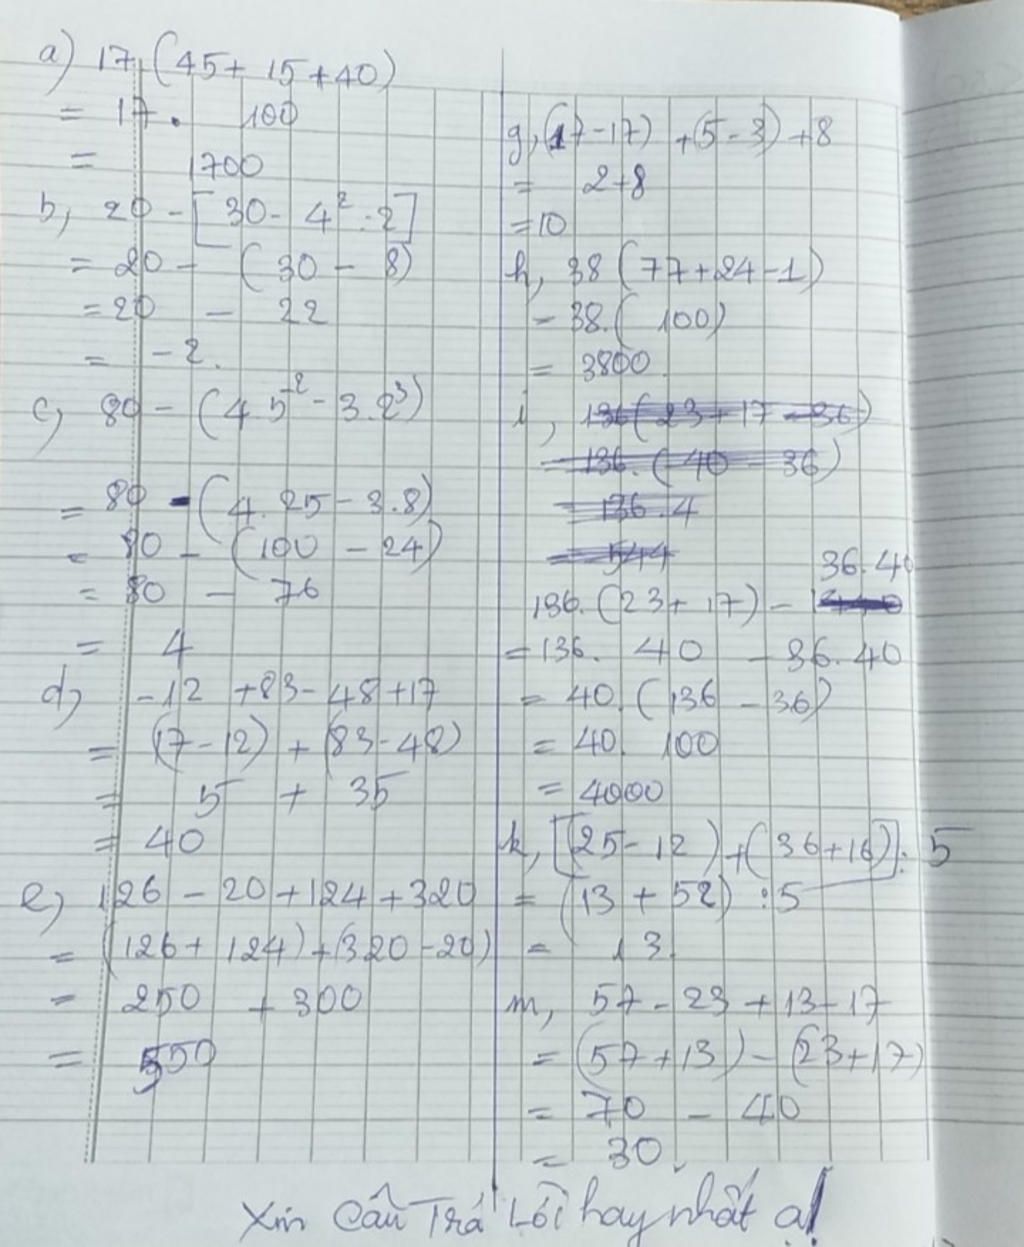 a) 17.(45+ 15+40)
= 17. 100
= 1700
b, 20 - [30 - 4² : 2]
= 20 - (30 - 8)
= 20 - 22
= - 2.
c, 80 - (4.5² - 3.2³)
= 80 - (4.25 - 3.8)
= 80 - (100 - 24)
= 80 - 76
= 4
d, -12 +83 - 48 +17
= (17 - 12) + (83 - 48)
= 5 + 35
= 40
e, 126 - 20 + 124 + 320
= (126 + 124) + (320 - 20)
= 250 + 300
= 550
g, (17 - 17) + (5 - 3) + 8
= 2+8
= 10
h, 38 (77+24-1)
- 38.( 100)
= 3800
i, 136(23+17-36)
= 136. (40 - 36)
= 136.4
= 544
36.40
136.(23+ 17) -
= 136. 40 - 36.40
= 40.(136 - 36)
= 40. 100
= 4000
k, [(25-12)+(36+16)]: 5
= (13 + 52) : 5
= 13.
m, 57 - 23 + 13 - 17
= (57 +13) - (23+17)
= 70 - 40
= 30.
Xin Câu Trả Lời hay nhất ạ!